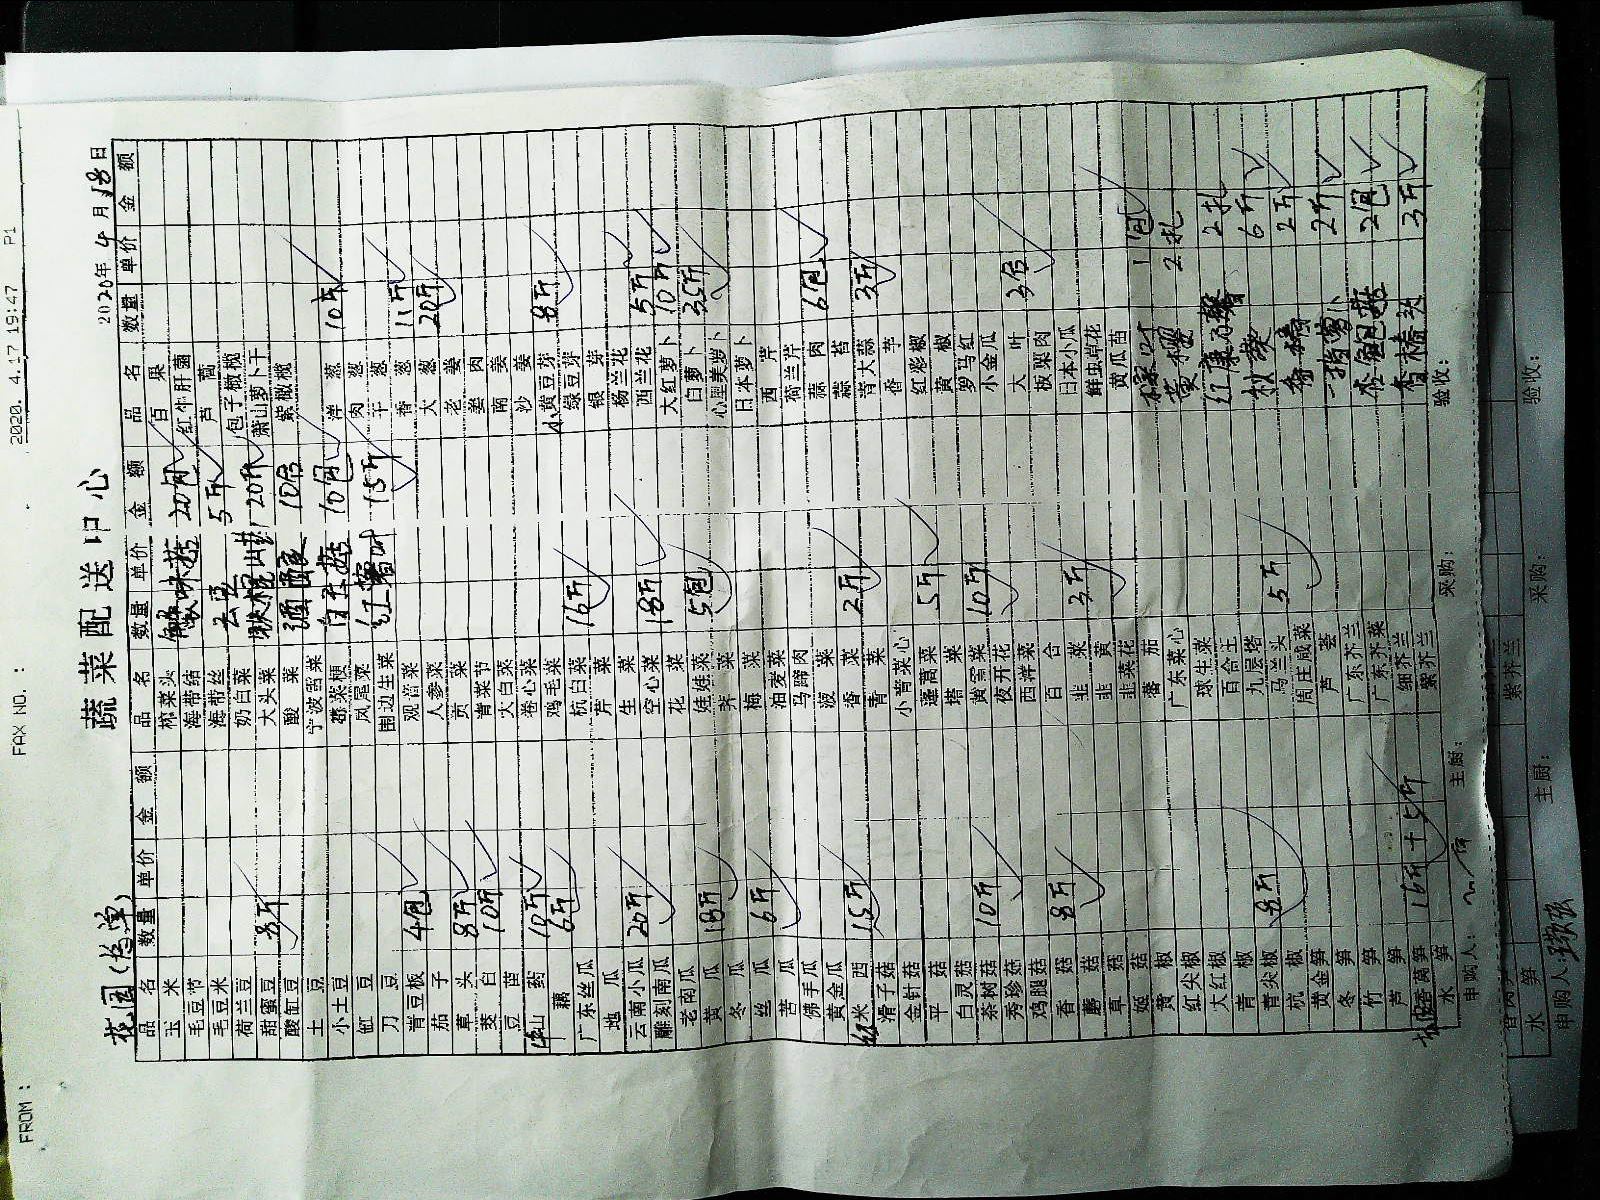 FROM : FAX NO. : 2020. 4.17 19:47 P1
蔬菜配送中心
花园 2020年 4月18日
品名 数量 单价 金额 品名 数量 单价 金额 品名 数量 单价 金额
玉米 榨菜头 百果
毛豆节 海带结 味菇 20包 红牛肝菌
毛豆米 海带丝 5斤 芦蒿
荷兰豆 奶白菜 20斤 包子橄榄
甜蜜豆 8斤 大头菜 萧山萝卜干
酸缸豆 酸菜 10合 紫橄榄
土豆 宁波雪菜
小土豆 雪菜梗 白玉菇 10包 洋葱 10斤
缸豆 凤尾菜 肉葱
刀豆 围边生菜 红薯叶 15斤 干葱 11斤
青豆板 4包 观音菜 香葱 20斤
茄子 人参菜 大葱
草头 8斤 贡菜 老姜
茭白 10斤 青菜节 姜肉
豆苗 大白菜 南姜
山药 10斤 卷心菜 沙姜
藕 6斤 鸡毛菜 黄豆芽 8斤
广东丝瓜 杭白菜 16斤 绿豆芽
地瓜 芹菜 银芽
云南小瓜 20斤 生菜 杨兰花
雕刻南瓜 空心菜 18斤 西兰花 5斤
老南瓜 花菜 大红萝卜 10斤
黄瓜 18斤 娃娃菜 5包 白萝卜 35斤
冬瓜 荠菜 心里美萝卜
丝瓜 6斤 梅菜 日本萝卜
苦瓜 油麦菜 西芹
佛手瓜 马蹄肉 荷兰芹
黄金瓜 菠菜 蒜肉 6包
米西 15斤 香菜 2斤 蒜苔
滑子菇 青菜 青大蒜 3斤
金针菇 小青菜心 香芋
平菇 蓬蒿菜 5斤 红彩椒
白灵菇 塔菜 黄椒
茶树菇 10斤 黄帝菜 10斤 罗马红
秀珍菇 夜开花 小金瓜
鸡腿菇 西洋菜 大叶 3合
香菇 8斤 百合 板栗肉
蘑菇 韭菜 3斤 日本小瓜
草菇 韭黄 鲜虫草花
姬菇 韭菜花 黄瓜苗
黄椒 蕃茄 1包
红尖椒 广东菜心 2扎
大红椒 球生菜 2扎
青椒 百合王 6斤
青尖椒 8斤 九层塔 5斤 2斤
杭椒 马兰头 2斤
黄金笋 周庄咸菜 杏鲍菇 2包
冬笋 芦荟 香椿头 3斤
竹笋 广东芥兰
芦笋 广东芥菜
莴笋 16斤+5斤 细芥兰
水笋 紫芥兰
申购人: 主厨: 采购: 验收:
水笋 紫芥兰
申购人: 主厨: 采购: 验收: